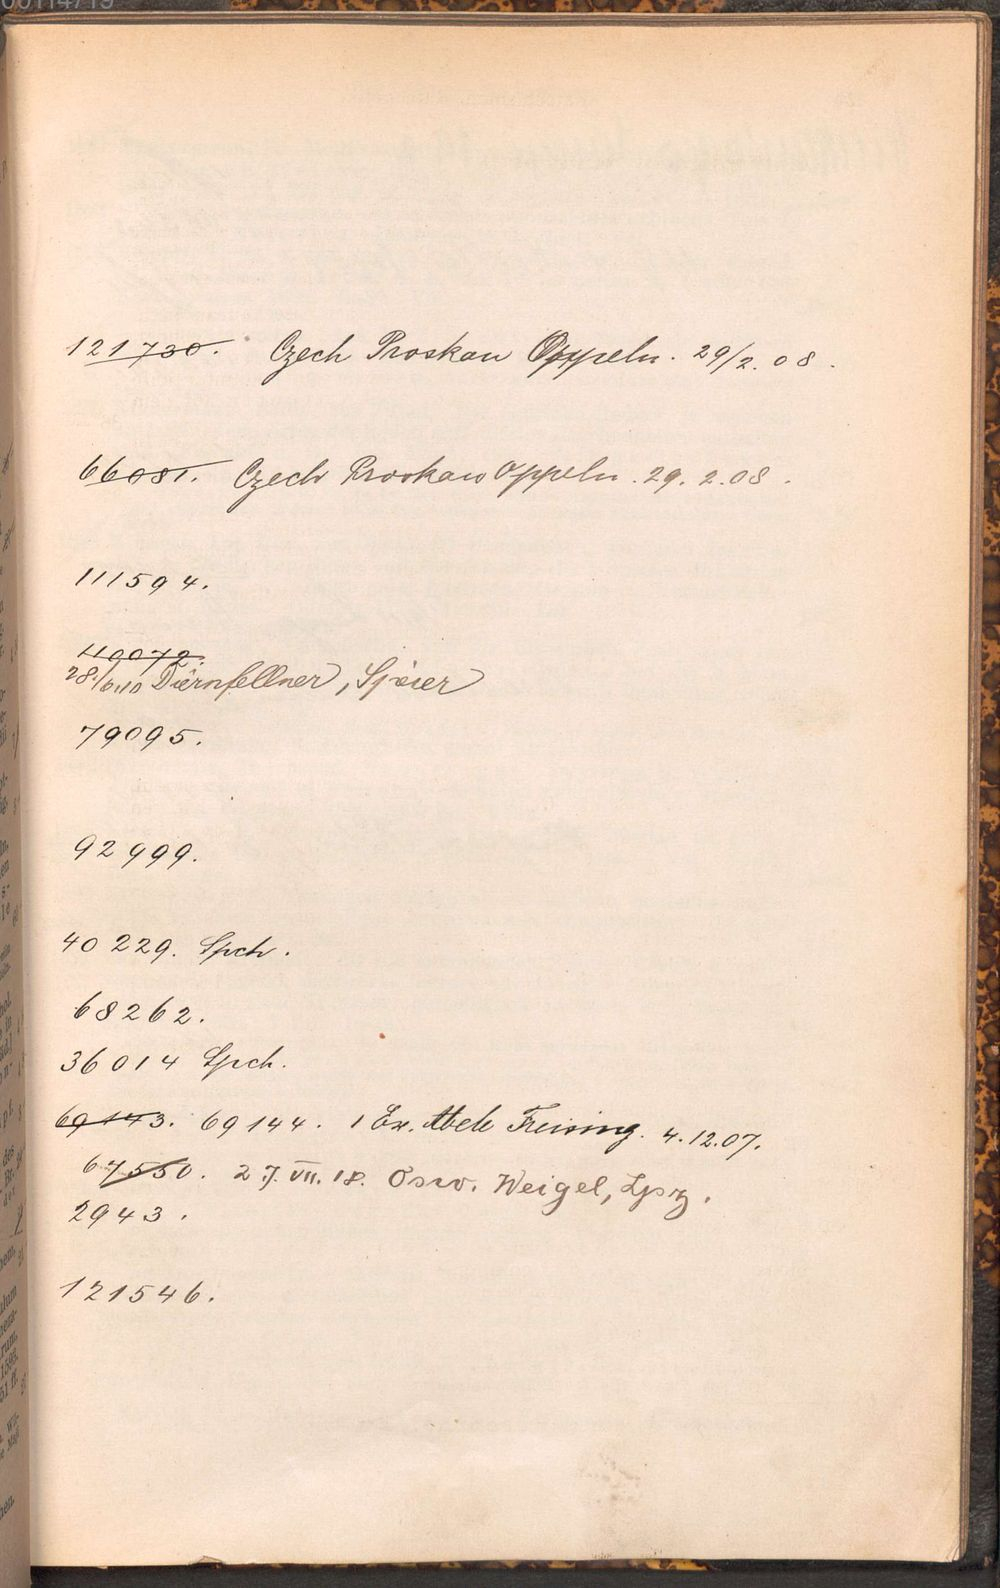 00114719
121730. Czech Proskau Oppeln. 29/2. 08.
66081. Czech Proskau Oppeln. 29. 2. 08.
111594.
110072.
28./6.10 Diernfellner, Speier
79095.
92999.
40229. Spch.
68262.
36014 Spch.
69143. 69144. 1 Ex. Abele Freising. 4.12.07.
67550. 27. VII. 18. Osw. Weigel, Lpzg.
2943.
121546.